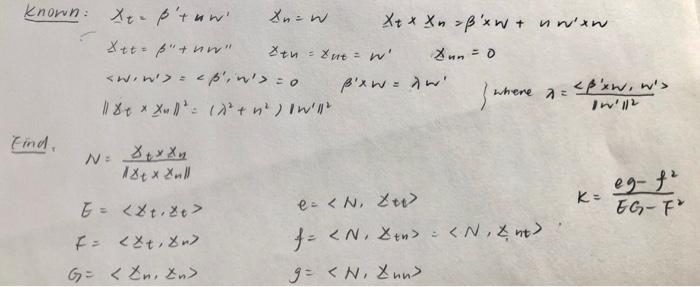 Known: Xt = β' + uw' Xu = w Xt × Xu = β'×w + u w'×w
Xtt = β'' + uw'' Xtu = Xut = w' Xuu = 0
<w, w'> = <β', w'> = 0 β'×w = λw' } where λ = <β'×w, w'> / ‖w'‖²
‖Xt × Xu‖² = (λ² + u²) ‖w'‖²
Find.
N = Xt × Xu / ‖Xt × Xu‖
E = <Xt, Xt> e = <N, Xtt> K = eg - f² / EG - F²
F = <Xt, Xu> f = <N, Xtu> = <N, Xut>
G = <Xu, Xu> g = <N, Xuu>